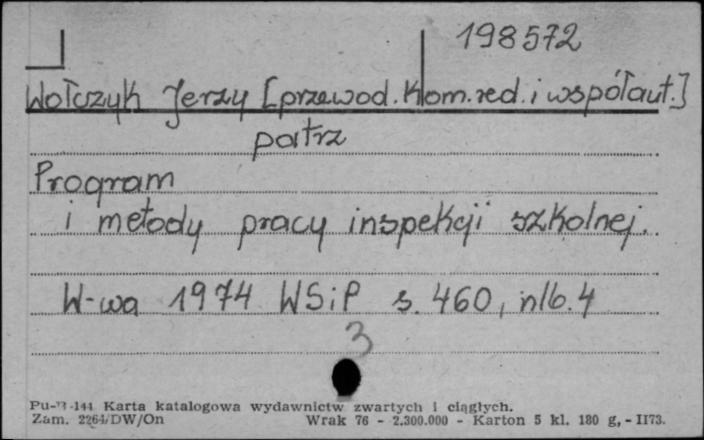 198572
Wołczyk Jerzy [przewod. Kom. red. i współaut.]
patrz
Program
i metody pracy inspekcji szkolnej.
W-wa 1974 WSiP s. 460, nlb. 4
3
Karta katalogowa wydawnictw zwartych i ciągłych.
Zam. 2264/DW/On Wrak 76 - 2.300.000 - Karton 5 kl. 180 g, - II73.